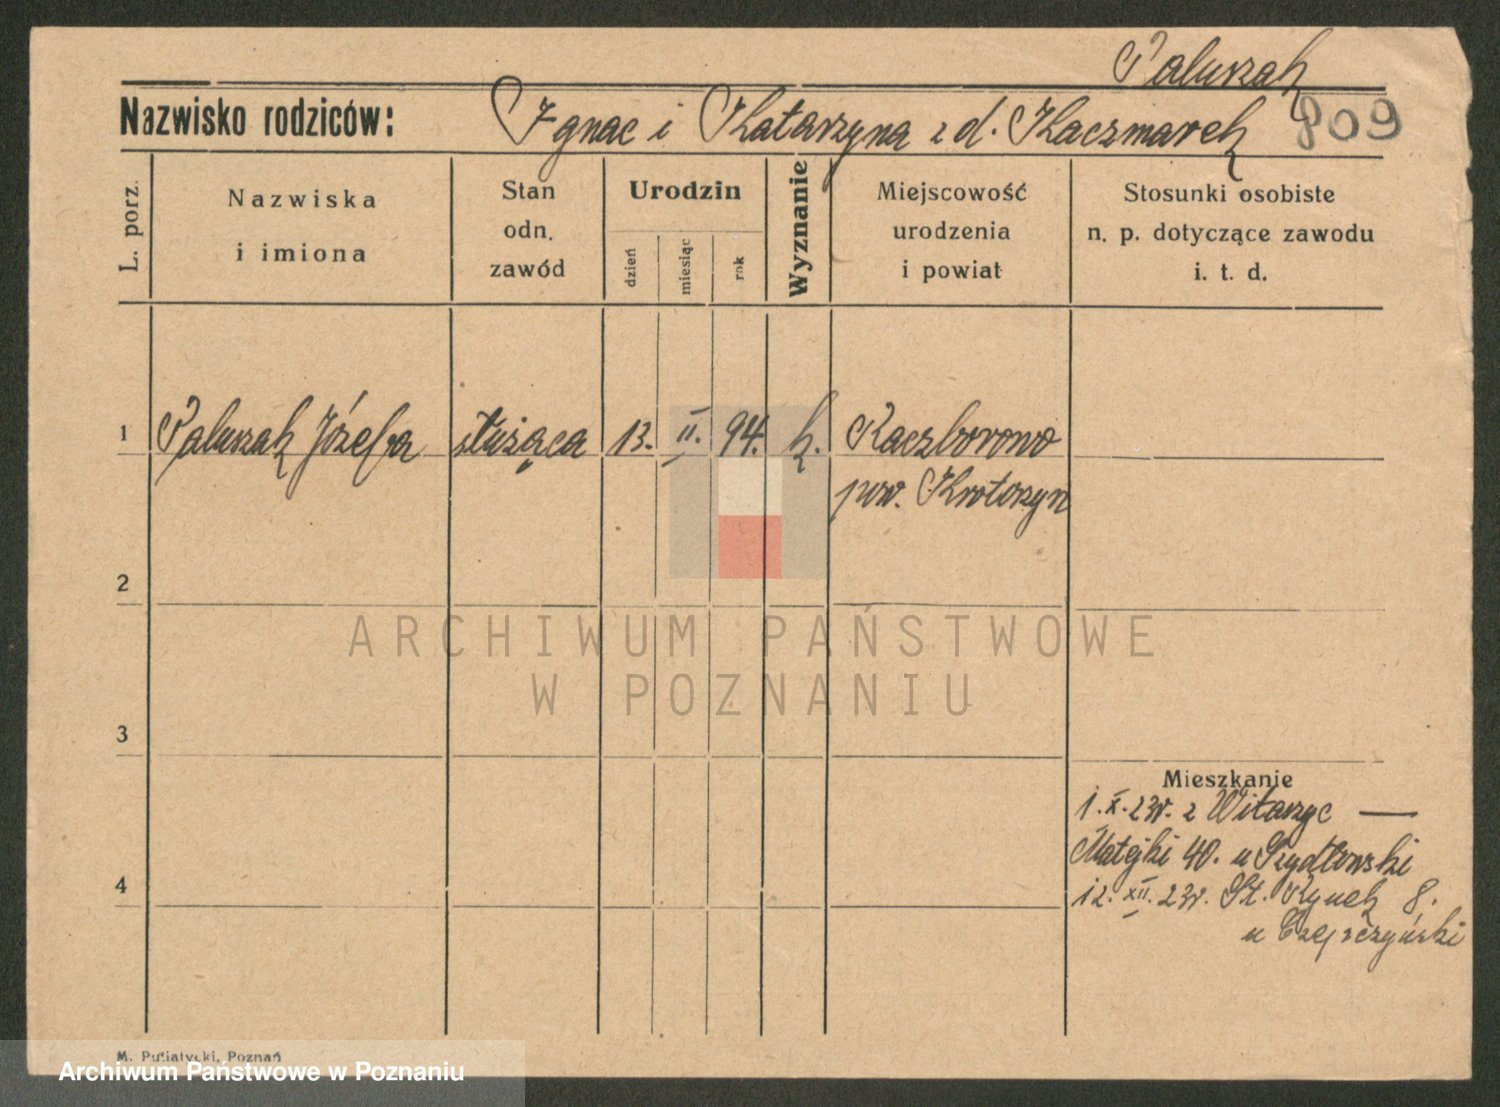 Paluszak
Nazwisko rodziców: Ignac i Katarzyna z d. Kaczmarek 809
L. porz.
Nazwiska
i imiona
Stan
odn.
zawód
Urodzin
dzień
miesiąc
rok
Wyznanie
Miejscowość
urodzenia
i powiat
Stosunki osobiste
n. p. dotyczące zawodu
i. t. d.
1 Paluszak Józefa służąca 13. II. 94. k. Kaczborowo
pow. Krotoszyn
2
ARCHIWUM PAŃSTWOWE
W POZNANIU
3
Mieszkanie
1. X. 23r. z Witaszyc —
Matejki 40. u Szydłowski
4
12. XII. 23r. St. Rynek 8.
u
M. Putiatycki, Poznań
Archiwum Państwowe w Poznaniu